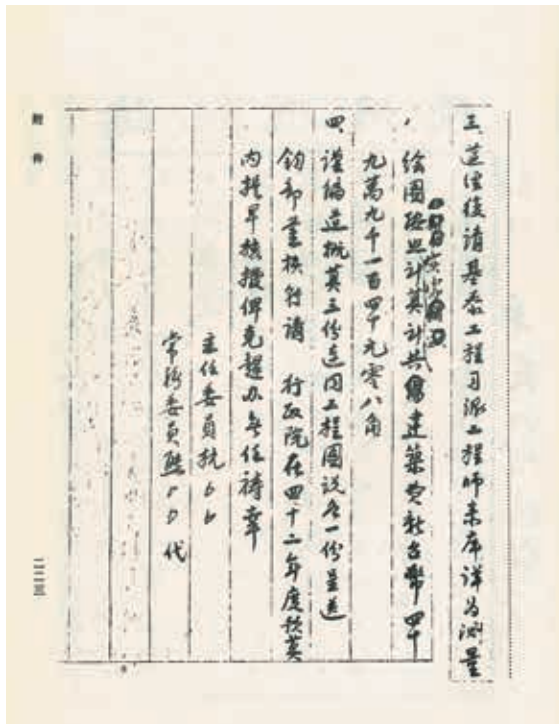 三、遵經復請基泰工程司派工程師來庫詳為測量
繪圖核無計算計共需建築費新台幣四十
九萬九千一百四十九零八角
四、謹編造概算三份連同工程圖說各一份呈送
鈞部鑒核符請 行政院在四十二年度預算
內提早核撥俾克趕辦無任禱幸
主任委員杭
常務委員熊 代
附件
二二三